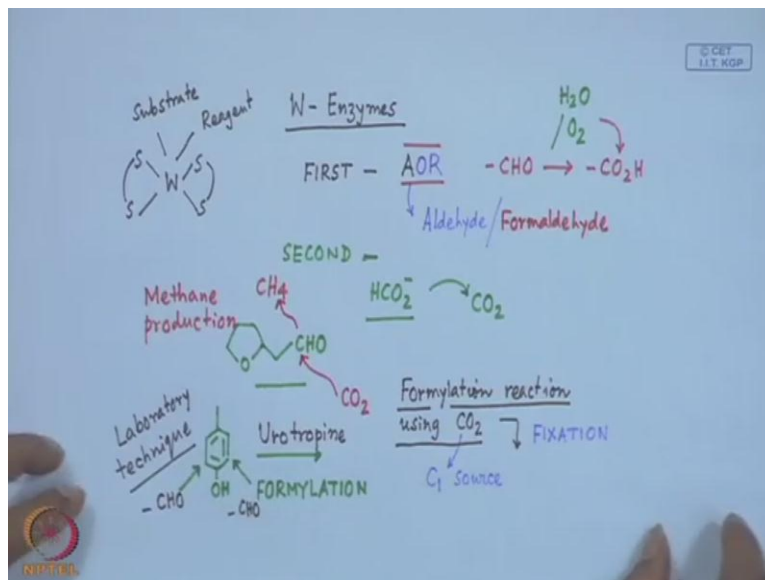 © CET
I.I.T. KGP
Substrate
Reagent
S S
W
S S
W- Enzymes
H2O
/ O2
FIRST - AOR -CHO → -CO2H
Aldehyde / Formaldehyde
SECOND -
HCO2- CO2
Methane
production
CH4
CHO
O
CO2
Laboratory
technique
Urotropine
OH FORMYLATION
-CHO -CHO
Formylation reaction
using CO2 FIXATION
C1 source
NPTEL